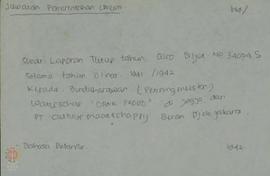 Jawatan Pemerintahan Umum
Surat Laporan Tutup tahun Giro Biljet No 34094 S
Selama tahun dinas 1941/1942
Kepada Bendaharawan (Penningmeister)
Waterschap "Opak Progo" di Jogja dari
PT Cultuur Maatschappij Beran Djokjakarta
Bahasa Belanda 1942